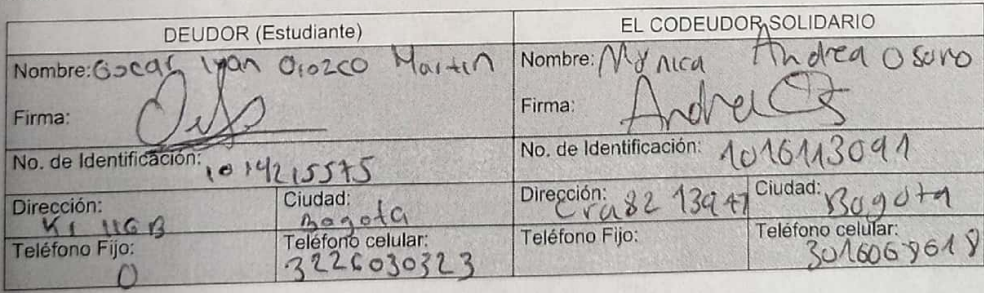 DEUDOR (Estudiante) EL CODEUDOR SOLIDARIO
Nombre: Oscar Ivan Orozco Martin Nombre: Monica Andrea Osorio
Firma: Firma: Andrea
No. de Identificación: 1014215575 No. de Identificación: 1016113091
Dirección: Ciudad: Bogota Dirección: Cra 82 Ciudad: Bogota
Teléfono Fijo: 0 Teléfono celular: 3226030323 Teléfono Fijo: Teléfono celular: